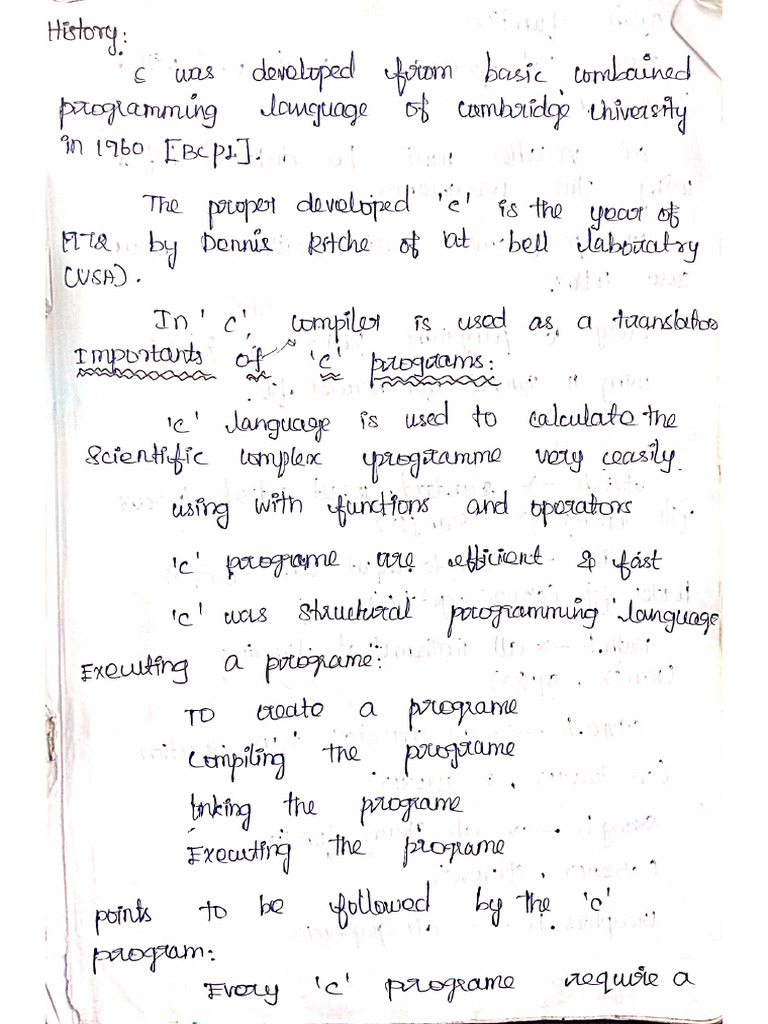 History:
C was developed from basic combained
programming language of Cambridge University
in 1960 [BCPL].
The proper developed 'c' is the year of
by Dennis Ritche of at bell laboratry
(USA).
In 'c', compiler is used as a translator
Importants of 'c' programs:
'c' language is used to calculate the
Scientific complex programme very easily
using with functions and operators
'c' programe are efficient & fast
'c' was structural programming language
Executing a programe:
TO create a programe
Compiling the programe
linking the programe
Executing the programe
points to be followed by the 'c'
program:
Every 'c' programe require a